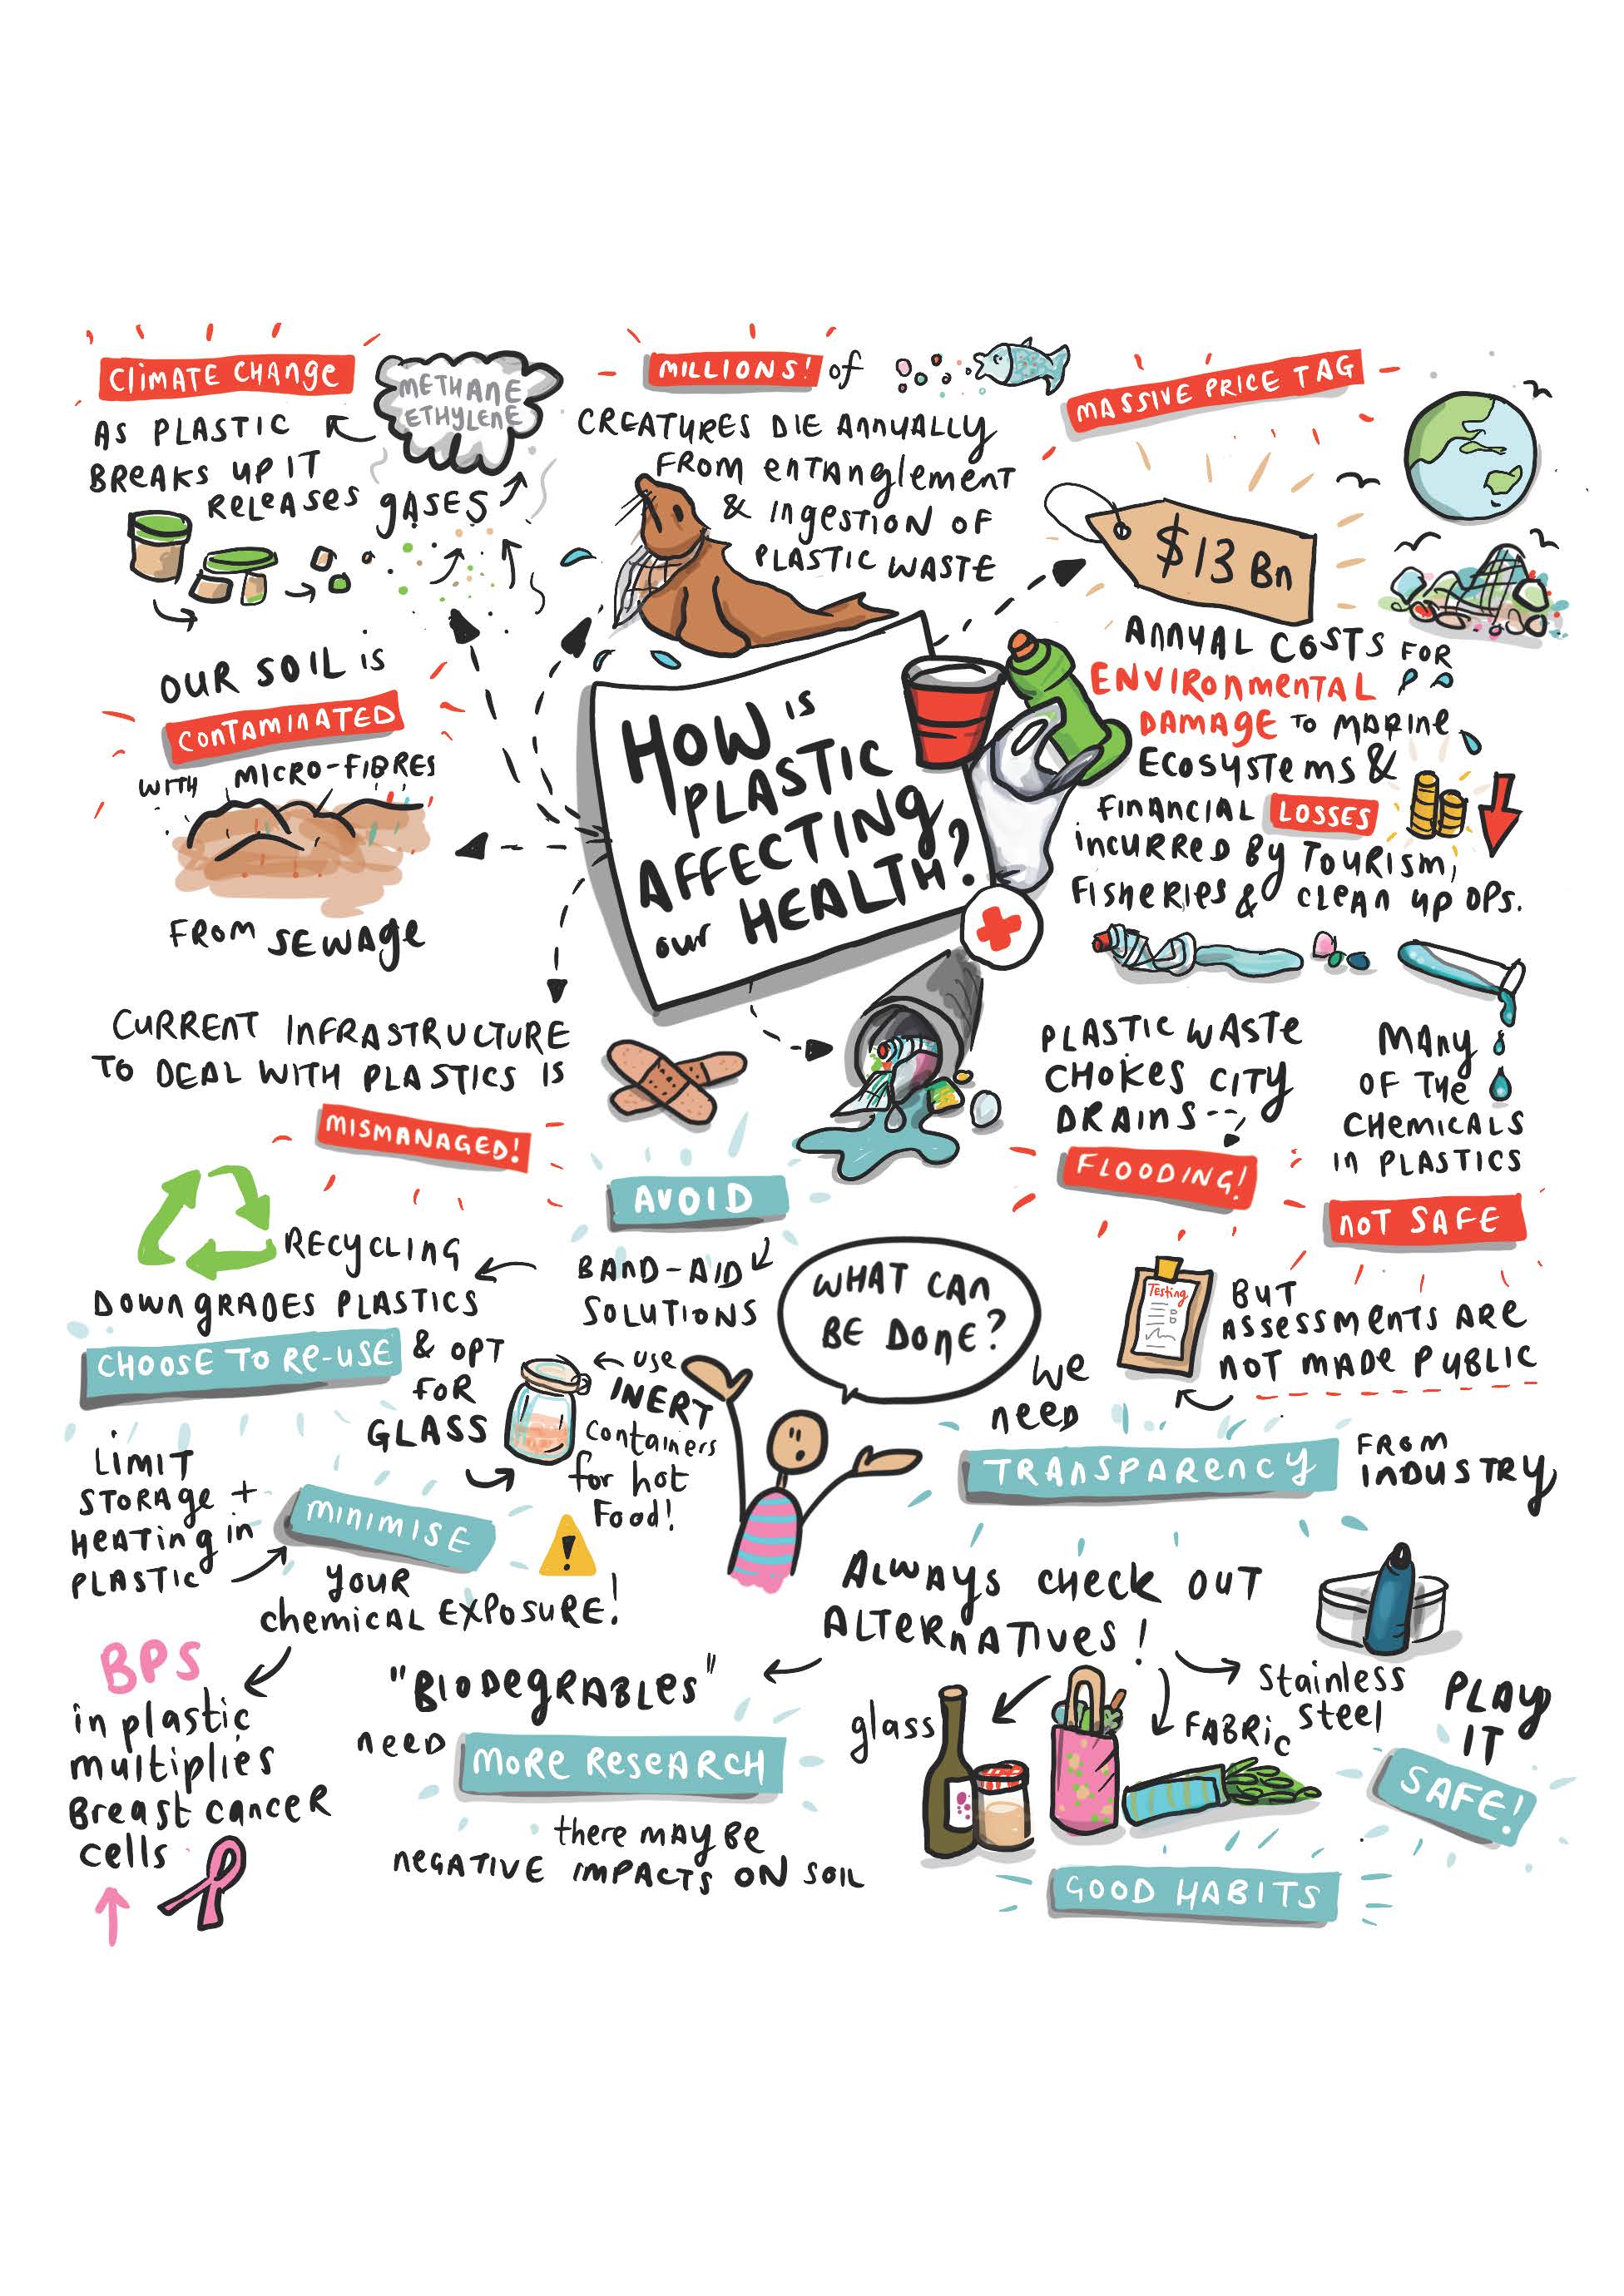 CLIMATE CHANGE
AS PLASTIC
BREAKS UP IT
RELEASES GASES
METHANE
ETHYLENE
MILLIONS! of
CREATURES DIE ANNUALLY
FROM ENTANGLEMENT
& INGESTION OF
PLASTIC WASTE
MASSIVE PRICE TAG
$13 Bn
ANNUAL COSTS FOR
ENVIRONMENTAL
DAMAGE TO MARINE
ECOSYSTEMS &
FINANCIAL LOSSES
INCURRED BY TOURISM,
FISHERIES & CLEAN UP OPS.
OUR SOIL IS
CONTAMINATED
WITH MICRO-FIBRES
FROM SEWAGE
HOW IS
PLASTIC
AFFECTING
our HEALTH?
CURRENT INFRASTRUCTURE
TO DEAL WITH PLASTICS IS
MISMANAGED!
PLASTIC WASTE
CHOKES CITY
DRAINS--
FLOODING!
MANY
OF THE
CHEMICALS
IN PLASTICS
NOT SAFE
Testing
BUT
ASSESSMENTS ARE
NOT MADE PUBLIC
WHAT CAN
BE DONE?
AVOID
BAND-AID
SOLUTIONS
RECYCLING
DOWNGRADES PLASTICS
CHOOSE TO RE-USE & OPT
FOR
GLASS
USE
INERT
containers
for hot
Food!
LIMIT
STORAGE +
HEATING IN
PLASTIC
MINIMISE
YOUR
CHEMICAL EXPOSURE!
BPS
in plastic
multiplies
Breast cancer
cells
WE
NEED
TRANSPARENCY
FROM
INDUSTRY
ALWAYS CHECK OUT
ALTERNATIVES!
"BIODEGRABLES"
NEED MORE RESEARCH
there MAY BE
NEGATIVE IMPACTS ON SOIL
glass
FABRIC
Stainless
Steel
PLAY
IT
SAFE!
GOOD HABITS